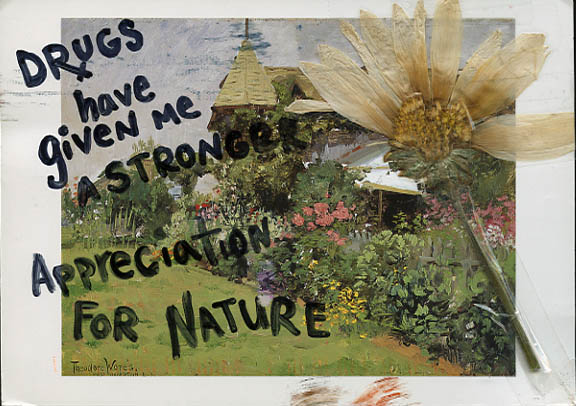 DRUGS
have
given me
A STRONGER
APPreciATION
FOR NATURE
Theodore Wores.